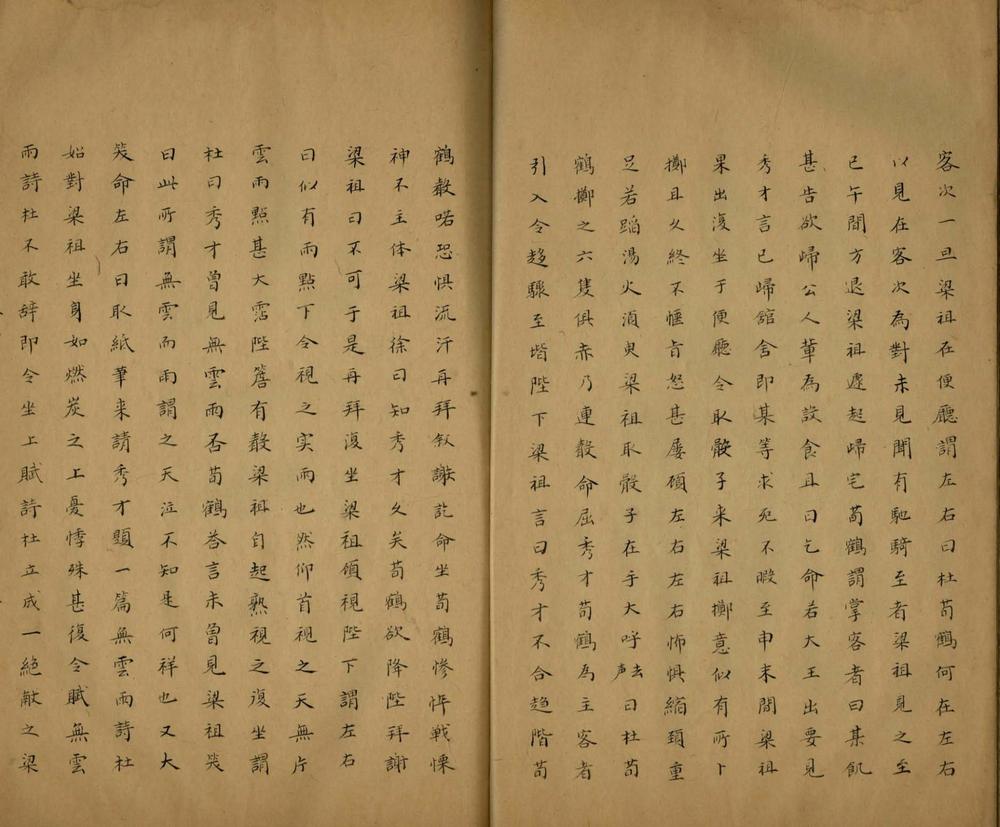 客次一旦梁祖在便廳謂左右曰杜荀鶴何在左右
以見在客次為對未見聞有馳騎至者梁祖見之至
已午間方退梁祖遽起歸宅荀鶴謂掌客者曰某飢
甚告欲歸公人輩為設食且曰乞命若大王出要見
秀才言已歸舘舍即某等求死不暇至申未間梁祖
果出復坐于便廳令取骰子来梁祖擲意似有所卜
擲且久終不愜旨怒甚屢顧左右左右怖惧縮頚重
足若蹈湯火湏臾梁祖取骰子在手大呼去声曰杜荀
鶴擲之六隻俱赤乃連聲命屈秀才荀鶴為主客者
引入令趍驟至堦陛下梁祖言曰秀才不合趍階荀
鶴聲喏恐惧流汗再拜叙謝訖命坐荀鶴慘悴戰慄
神不主体梁祖徐曰知秀才久矣荀鶴欲降陛拜謝
梁祖曰不可于是再拜復坐梁祖顧視陛下謂左右
曰似有雨點下令視之实雨也然仰首視之天無片
雲雨點甚大霑陛簷有聲梁祖自起熟視之復坐謂
杜曰秀才曾見無雲雨否荀鶴荅言未曾見梁祖笑
曰此所謂無雲而雨謂之天泣不知是何祥也又大
笑命左右曰取紙筆来請秀才題一篇無雲雨詩杜
始對梁祖坐身如燃炭之上憂悸殊甚復令賦無雲
雨詩杜不敢辞即令坐上賦詩杜立成一絕献之梁